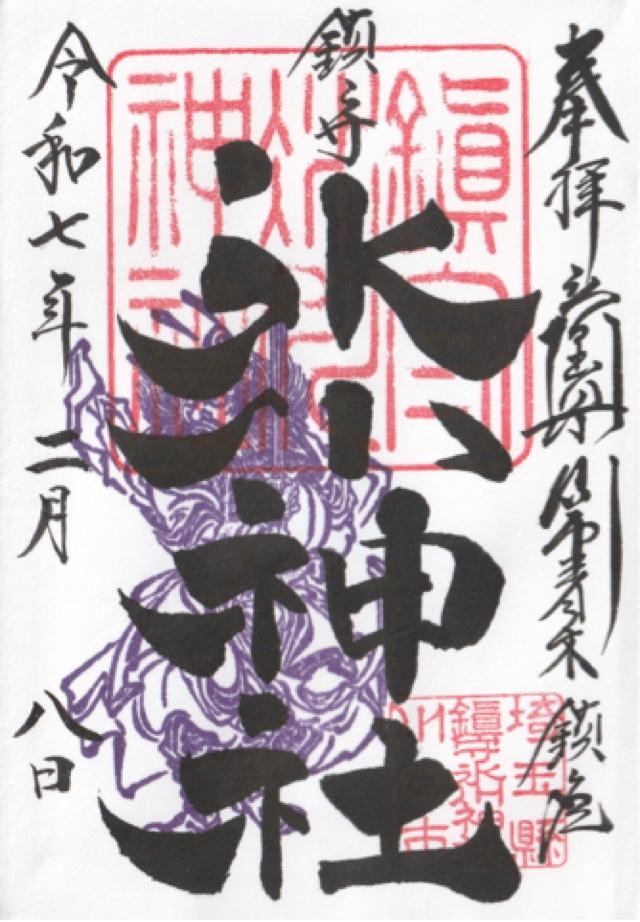 奉拝 青木 鎮座
鎮守
氷川神社
令和七年 二月 八日
鎮守
氷川
神社
埼玉縣
鎮守氷川神社
川口市